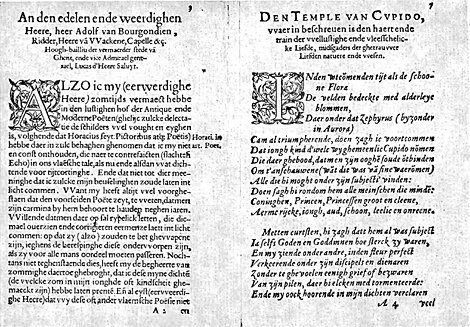 An den edelen ende weerdighen
Heere, heer Adolf van Bourgondien,
Ridder, Heere vā VVackene, Capelle &c.
Hoogh-bailliu der vermaerder stede vā
Ghent, ende vice Admirael gene-
rael, Lucas d'Heere Saluyt.
ALZO ic my (eerweerdighe
Heere) zomtijds vermaect hebbe
in den lustigen hof der Antique ende
Moderne Poëten (ghelijc zulcke delecta-
tie de schilders vvel vought en eyghen
is, volghende dat Horatius seyt. Pictoribus atq; Poëtis)
Horati. in
art. Poet.
hebbe daer in zulc behaghen ghenomen dat ic my niet
en const onthouden, die naer te contrefaicten (slachten
Echo) in ons vlaesche tale, als nu ende alsdan vvat dich-
tende voor tijtcortinghe. Ende dat niet
licht commen. VVant my heeft altijt vvel voorghe-
staen dat den voorseiden Poëte zeyt, te vveten, datmen
zijn carmina by hem behoort te
VVillende datmen daer op
ommesien ende corrigieren eermense laet int licht
commen: op dat zy (alzo) zouden te bet ghevvapent
zijn, ieghens de berespinghe diese onderworpen zijn,
even zeer als zy die ons allen mondeel moeten passeren. Noch-
tans niet teghenstaende dies, heeft my de begheerte van
zommighe daer toe ghebroght, dat ic dese mijne dichtē
(de vvelcke zom in mijn ionghde oft kindscheit ghe-
maeckt zijn) hebbe laten prenten. En al eyst (eervveerdi-
ghe Heere) dat vvy dese oft ander vlaemsche Poësie niet
A 2 en
9
DEN TEMPLE VAN CVPIDO,
vvaer in beschreuen is den haert ende
train der vvellustighe ende vleeschelic-
ke Liefde, midsgaders der ghetrauvver
Liefden natuere ende vvesen.
INden wtcōmenden tijt als de schoo-
ne Flora
De velden bedeckte met alderleye
blommen,
Daer onder dat Zephyrus (byzonder
in Aurora)
Cam al triumpherende, doen zagh ic voortcommen
Dat iongh kind d'welc vvy ghemeenlic Cupido nōmen
Die daer ghebood, datmen zijn ooghē soude ōtbinden
Om t'anschauvvene (wat die was vā fine waerdmen)
Alle die hi moghte onder zijn subiecti' vinden:
Doen sagh hi rondom hem alle meinschen die minde
Coninghen, Princen, Princessen groot en cleene,
Aerme, rijcke, iongh, aud, schoon, leelic en onreene.
Metten cureften, hi zagh dat hem al was subiect
Ia selfs Goden en Goddinnen hoe sterck zy waren,
En my ziende onder andre, in den fleur perfect
Verkeerende onder zijn discipels en dienaren
Zonder te ghevoelen eenigh grief of bezwaren
Van zijn pilen, daer hi elcken med tormenteerder
Ende my oock hoorende in mijn dichten verclaren
A 4 veel